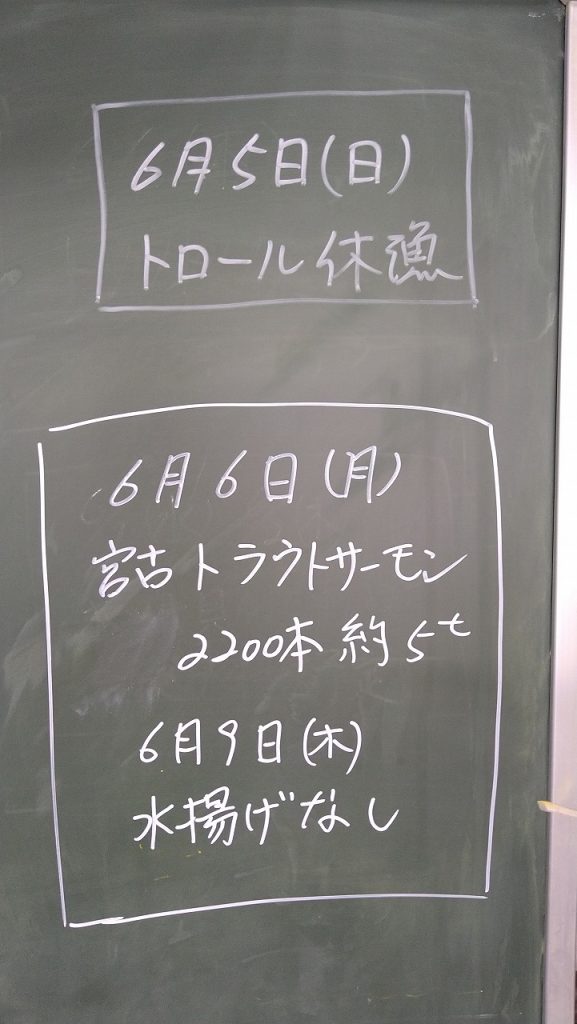 6月5日(日)
トロール休漁
6月6日(月)
宮古トラウトサーモン
2200本 約5t
6月9日(木)
水揚げなし